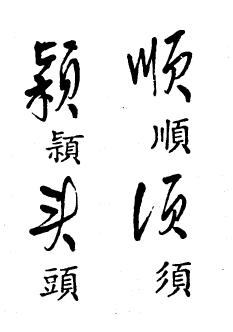 顺
順
须
須
颕
頴
头
頭